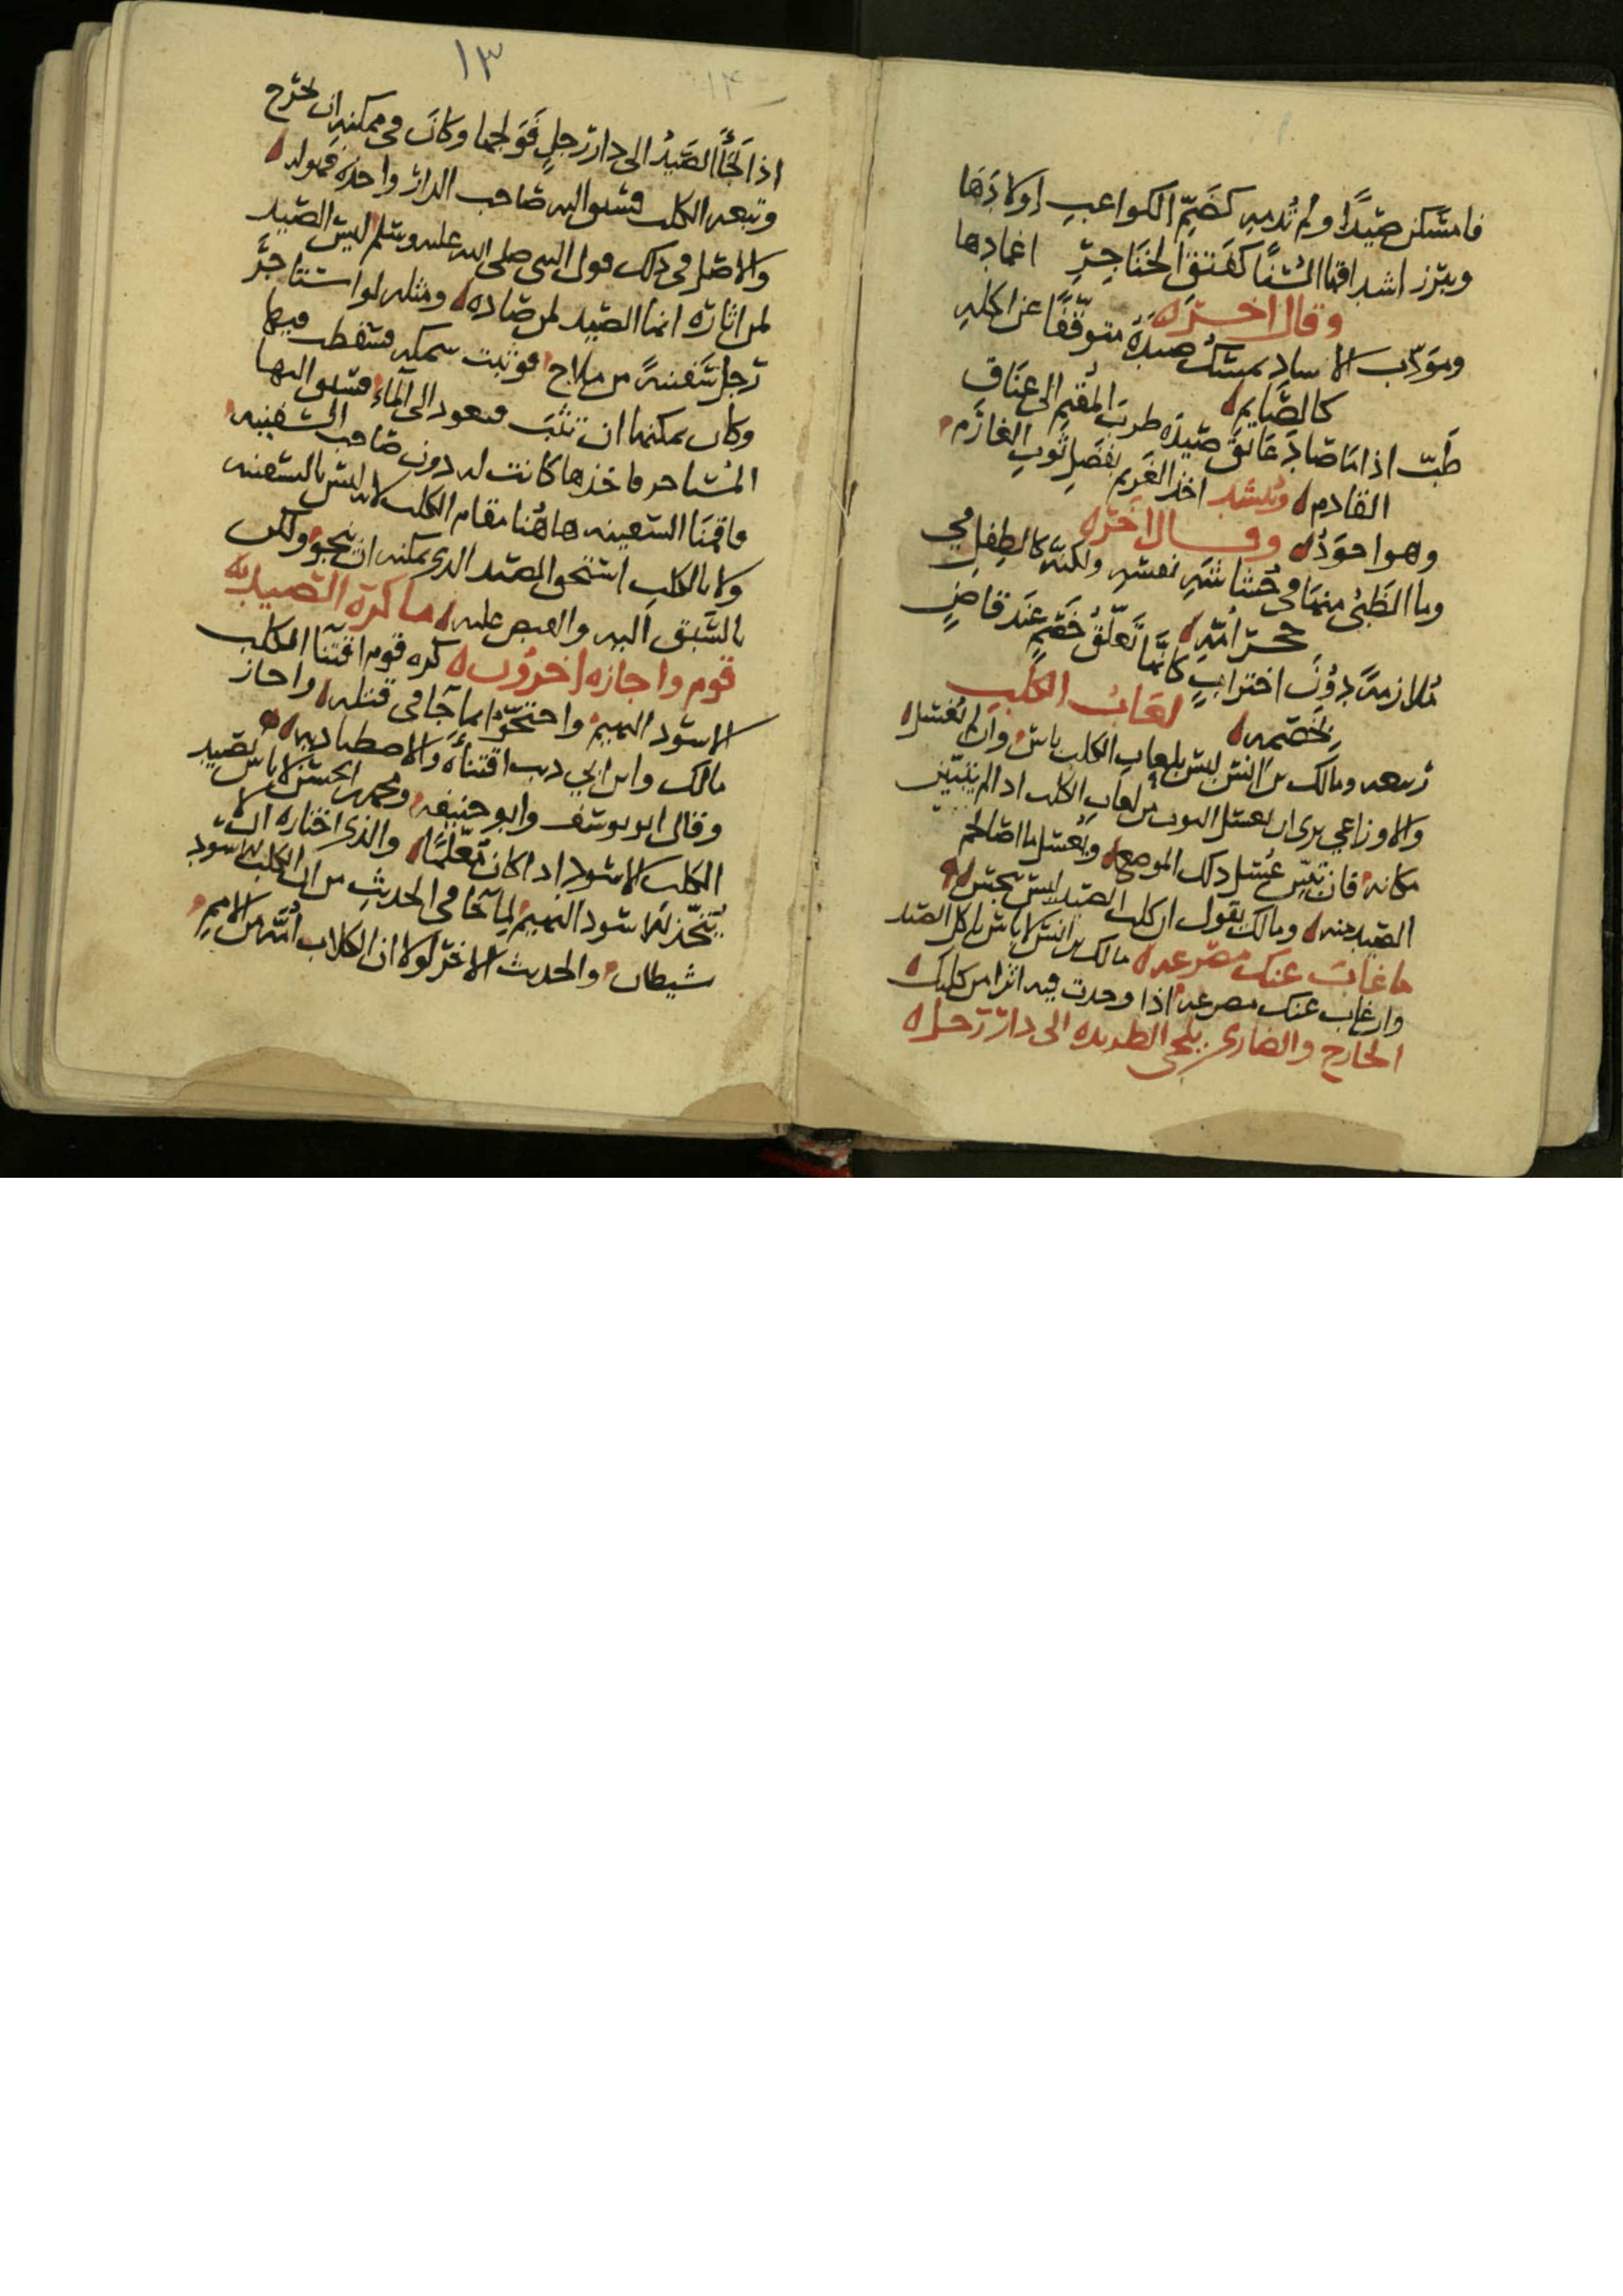 فامسكن صيدًا ولم تُدمِهِ كضَمِّ الكواعبِ اولادَهَا
ويبرز اشداقها السُنًا كفتق الخناجِرِ اغمادها
وقال اخر
ومودّب الاساد يمسك صيدَهُ متوقّفًا عن اكلهِ
كالصَّايم
طبّ اذا ما صاد عانق صيدَه طرب المُقيم الى عناق
القادم وينشد اخذ الغريم بفضل ثوب الغارم
وهو اجود وقال اخر
وما الظبيُ منها في حُشاشة نفسهِ ولكنّه كالطفل في
حجر امّهِ
مُلازمةً دون اختراب كانما تعلّق خصم عند قاضٍ
بخصمه لعاب الكلب
ربيعه ومالك بن انس ليس بلعاب الكلب باس وان لم يغسل
والاوزاعي يرى ان يغسل الثوب من لعاب الكلب اذا لم يتبيّن
مكانه فان تبيّن غسل ذلك الموضع ويغسل ما اصاب لحم
الصيد منه ومالك يقول ان كلب الصيد ليس بنجس
ما غاب عنك مصرعه مالك بن انس لا باس باكل الصيد
وان غاب عنك مصرعه اذا وجدت فيه اثرا من كلبك
الجارح والضاري يلجي الطريده الى دار رجل
١٣
١٤
اذا لجأ الصيدُ الى دار رجلٍ فولجها وكان في ممكنه ان يخرج
وتبعه الكلب فسبق اليه صاحب الدار واخذه فهو له
والاصل في ذلك قول النبي صلى الله عليه وسلم ليس الصيد
لمن اثاره انما الصيد لمن صاده ومثله لو استاجر
رجل سفينةً من ملاح فوثبت سمكه فسقطت فيها
وكان يمكنها ان تثب فتعود الى الماء فسبق اليها
المستاجر فاخذها كانت له دون صاحب السفينه
فاقمنا السفينه هاهُنا مقام الكلب لانه ليس بالسفينه
ولا بالكلب استحق الصيد الذي يمكنه ان ينجو ولكن
بالسبق اليه والقبض عليه ما كره الصيد به
قوم واجازه اخرون كره قوم اقتنا الكلب
الاسود البهيم واحتجّوا بما جآ في قتله واجاز
مالك وابن ابي ذيب اقتناءه والاصطياد به
وقال ابو يوسف وابو حنيفه ومحمد بن الحسن لا باس بصيد
الكلب الاسود اذا كان مُعلّمًا والذي اختاره ان لا
يُتّخذ الاسود البهيم لما جآ في الحديث من ان الكلب الاسود
شيطان والحديث الاخر لولا ان الكلاب امّة من الامم